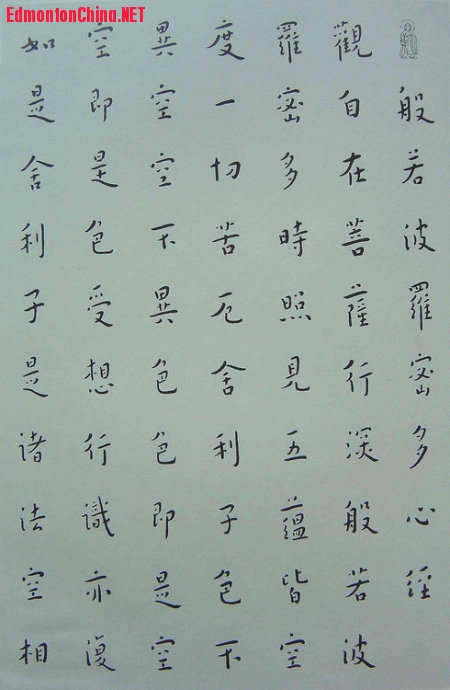 EdmontonChina.NET
般若波羅密多心經
觀自在菩薩行深般若波
羅密多時照見五蘊皆空
度一切苦厄舍利子色不
異空空不異色色即是空
空即是色受想行識亦復
如是舍利子是諸法空相